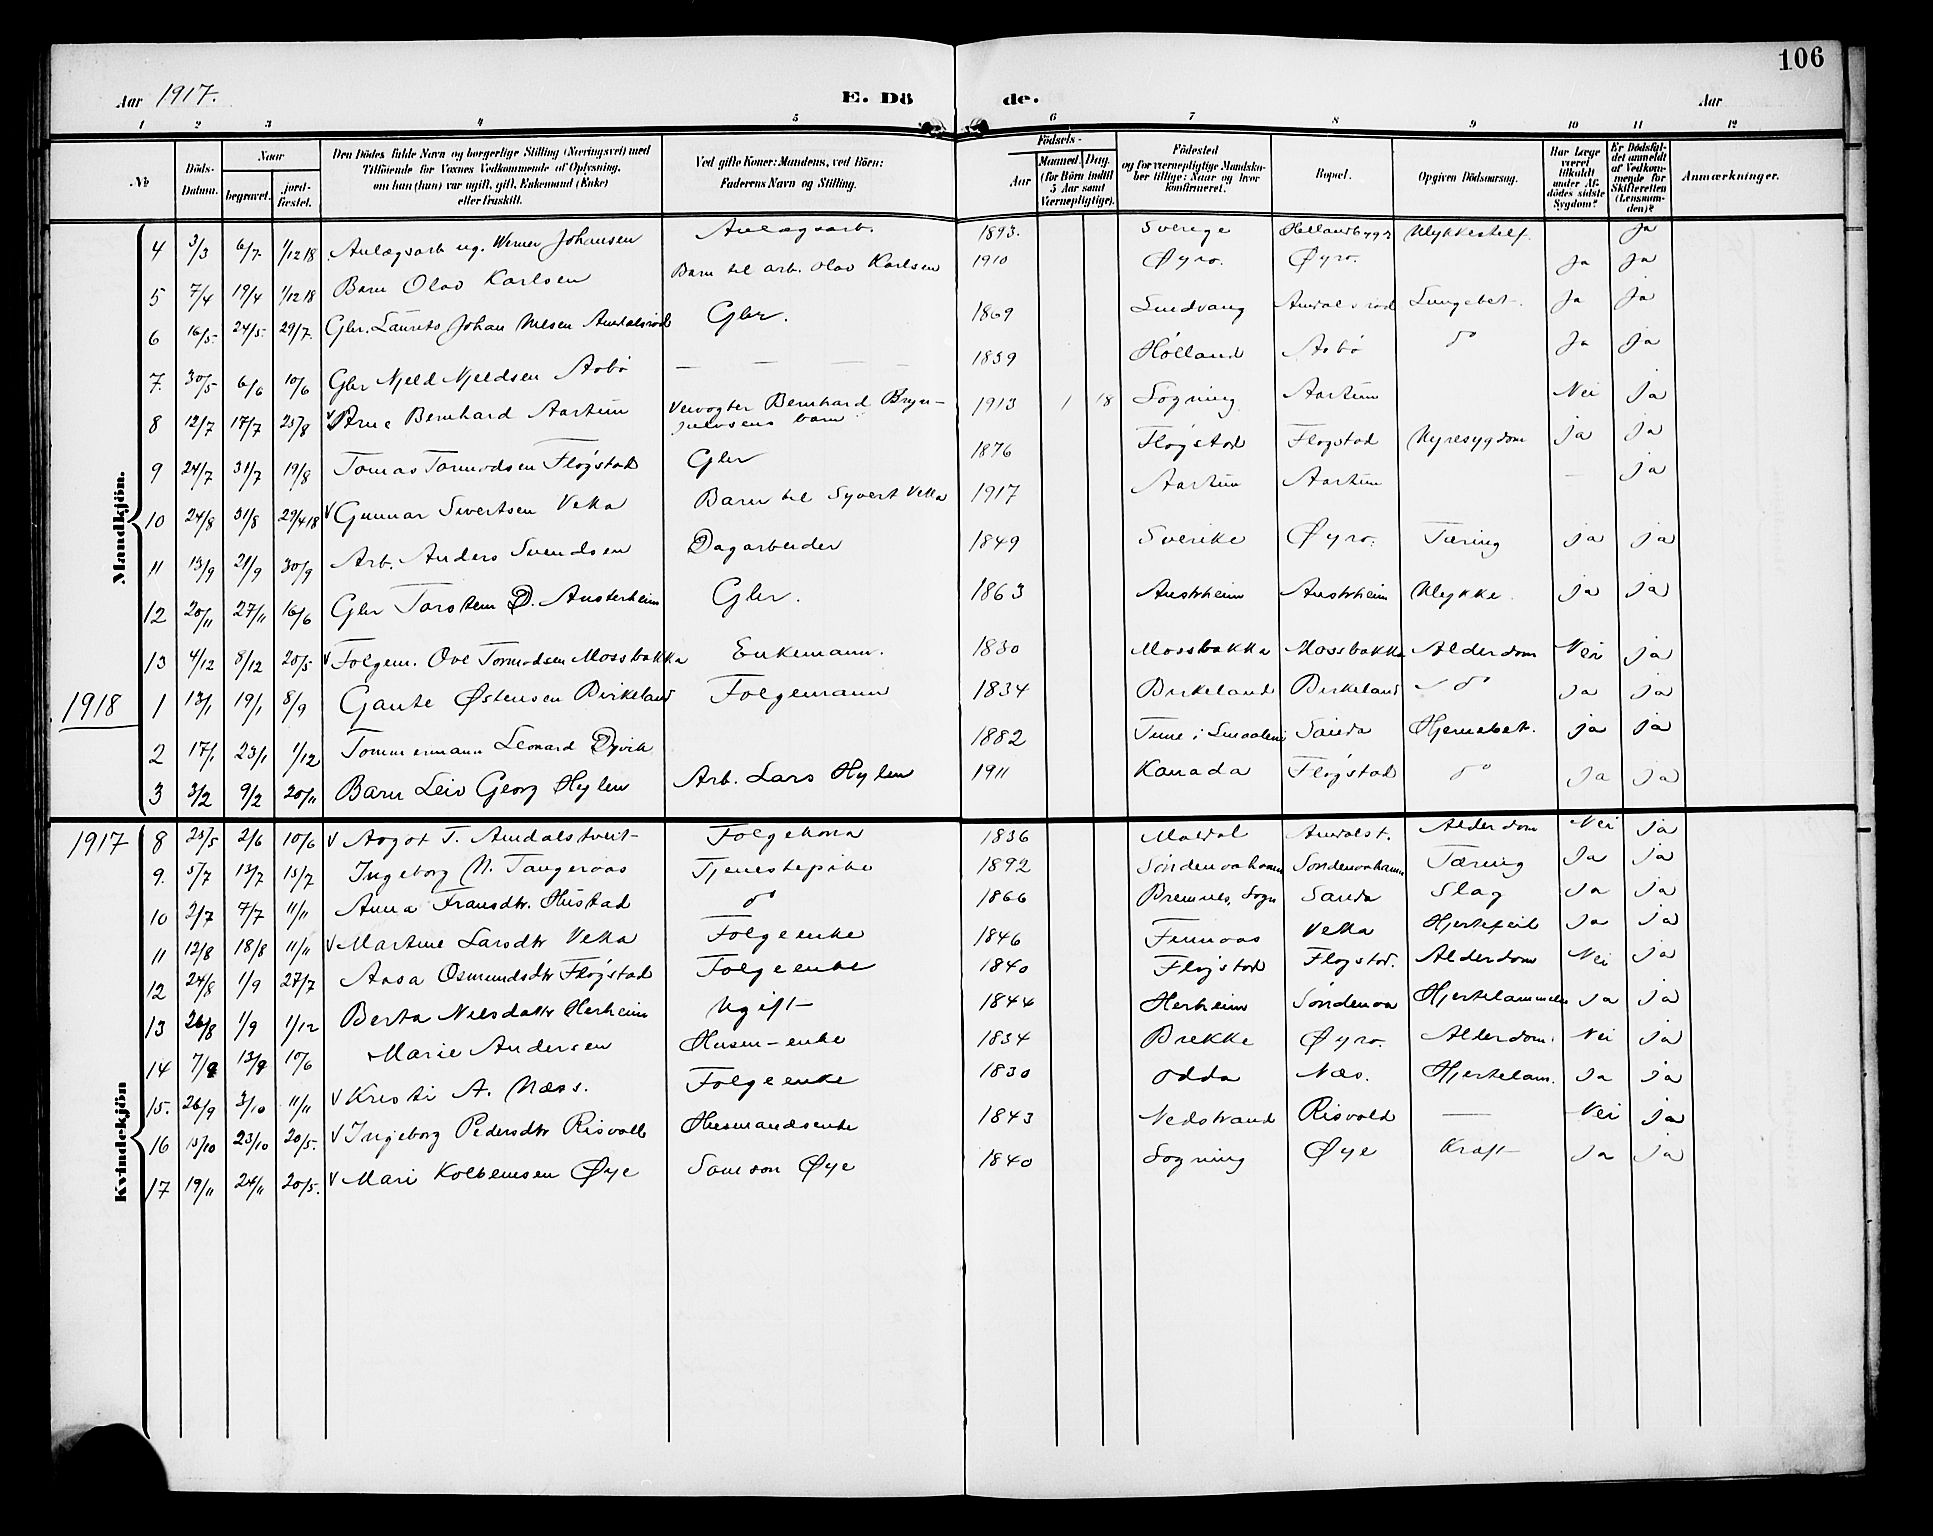 106
Aar 1917.
E. Dö de.
Aar
1 2 3 4 5 6 7 8 9 10 11 12
No
Döds-Datum.
Naar
begravet. jord-fæstet.
Den Dödes fulde Navn og borgerlige Stilling (Næringsvei) med
Tilföiende for Voxnes Vedkommende af Oplysning,
om han (hun) var ugift, gift, Enkemand (Enke)
eller fraskilt.
Ved gifte Koner: Mandens, ved Börn:
Faderens Navn og Stilling.
Födsels-
Aar
Maaned. Dag.
(for Börn indtil
5 Aar samt
Værnepligtige).
Födested
og for værnepligtige Mandska-
ber tillige: Naar og hvor
konfirmeret.
Bopæl.
Opgiven Dödsaarsag.
Har Læge
været
tilkaldt
under Af-
dödes sidste
Sygdom?
Er Dödsfal-
det anmeldt
af Vedkom-
mende for
Skifteretten
(Lensman-
den)?
Anmærkninger.
Mandkjön.
4 3/3 6/7 1/12 18 Anlægsarb. ug. Werner Johansen Anlægsarb. 1893. Sverige Ulykkestilf. Ja
5 7/4 19/4 1/12 18 Barn Olav Karlsen Barn til arb. Olav Karlsen 1910 Øyro. Øyro. Ja Ja
6 16/5 24/5 29/7 Gbr. Laurits Johan Nilsen Amdalsrød Gbr. 1869 Lindvang Amdalsrød Lungebet. Ja Ja
7. 30/5 6/6 10/6 Gbr Kjeld Kjeldsen Asbø — — — — 1859 Hölland Asbø do Ja Ja
8 12/7 17/7 25/8 v Arne Bernhard Aartun Veivogter Bernhard Bryn-
julvsens barn 1913 1 18 Sogning Aartun Nei Ja
9 24/7 31/7 19/8 Tomas Tormodsen Fløgstad Gbr 1876 Fløgstad Fløgstad Nyresygdom Ja Ja
10 24/8 31/8 29/4 18 v Gunnar Sivertsen Veka Barn til Syvert Veka 1917 Aartun Aartun — Ja
11 13/9 21/9 30/9 Arb. Anders Svendsen Dagarbeider 1849 Sverike Øyro. Tæring Ja Ja
12 20/11 27/11 16/6 Gbr Torstein D. Austerheim Gbr. 1863 Austrheim Austrheim Ulykke. Ja Ja
13 4/12 8/12 20/5 v Folgem. Ove Tormodsen Mossbakka Enkemann. 1830 Mossbakka Mossbakka Alderdom Nei Ja
1918
1 13/1 19/1 8/9 Gaute Østensen Birkeland Folgemann 1834 Birkeland Birkeland do Ja Ja
2 17/1 23/1 1/12 Tømmermann Leonard Dyvik 1882 Tune i Smaalene Sauda Hjernebet. Ja Ja
3 3/2 9/2 20/11 Barn Leiv Georg Hylen Arb. Lars Hylen 1911 Kanada Fløgstad do Ja Ja
1917
Kvindekjön
8 25/5 2/6 10/6 v Aagot T. Amdalstveit Folgekona 1836 Maldal Amdalst. Alderdom Nei Ja
9. 5/7 13/7 15/7 Ingeborg N. Tangeraas Tjenestepike 1892 Søndenaahavn Søndenaahavn Tæring Ja Ja
10 2/7 7/7 11/11 Anna Fransdtr. Hustad do 1866 Bremnes, Sogn Sauda Slag Ja Ja
11 12/8 18/8 11/11 v Martine Larsdtr Veka Folgeenke 1846 Finnaas Veka Hjertefeil Ja Ja
12 24/8 1/9 27/7 Aasa Osmundsdtr Fløgstad Folgeenke 1840 Fløgstad Fløgstad. Alderdom Nei Ja
13 26/8 1/9 1/12 Berta Nilsdattr Herheim Ugift 1844 Herheim Søndenaa Hjertelammelse Ja Ja
14 7/9 13/9 10/6 Marie Andersen Husm-enke 1834 Brekke Øyro. Alderdom. Nei Ja
15. 26/9 3/10 11/11 v Kristi A. Næss. Folgeenke 1830 Odda Næs. Hjertelam. Ja Ja
16 15/10 23/10 20/5. v Ingeborg Pedersdtr Risvold Husmandsenke 1843 Nedstrand Risvold — Nei Ja
17 19/11 24/11 20/5. v Mari Kolbeinsen Øye Samson Øye 1840 Sogning Øye Kræft Ja Ja